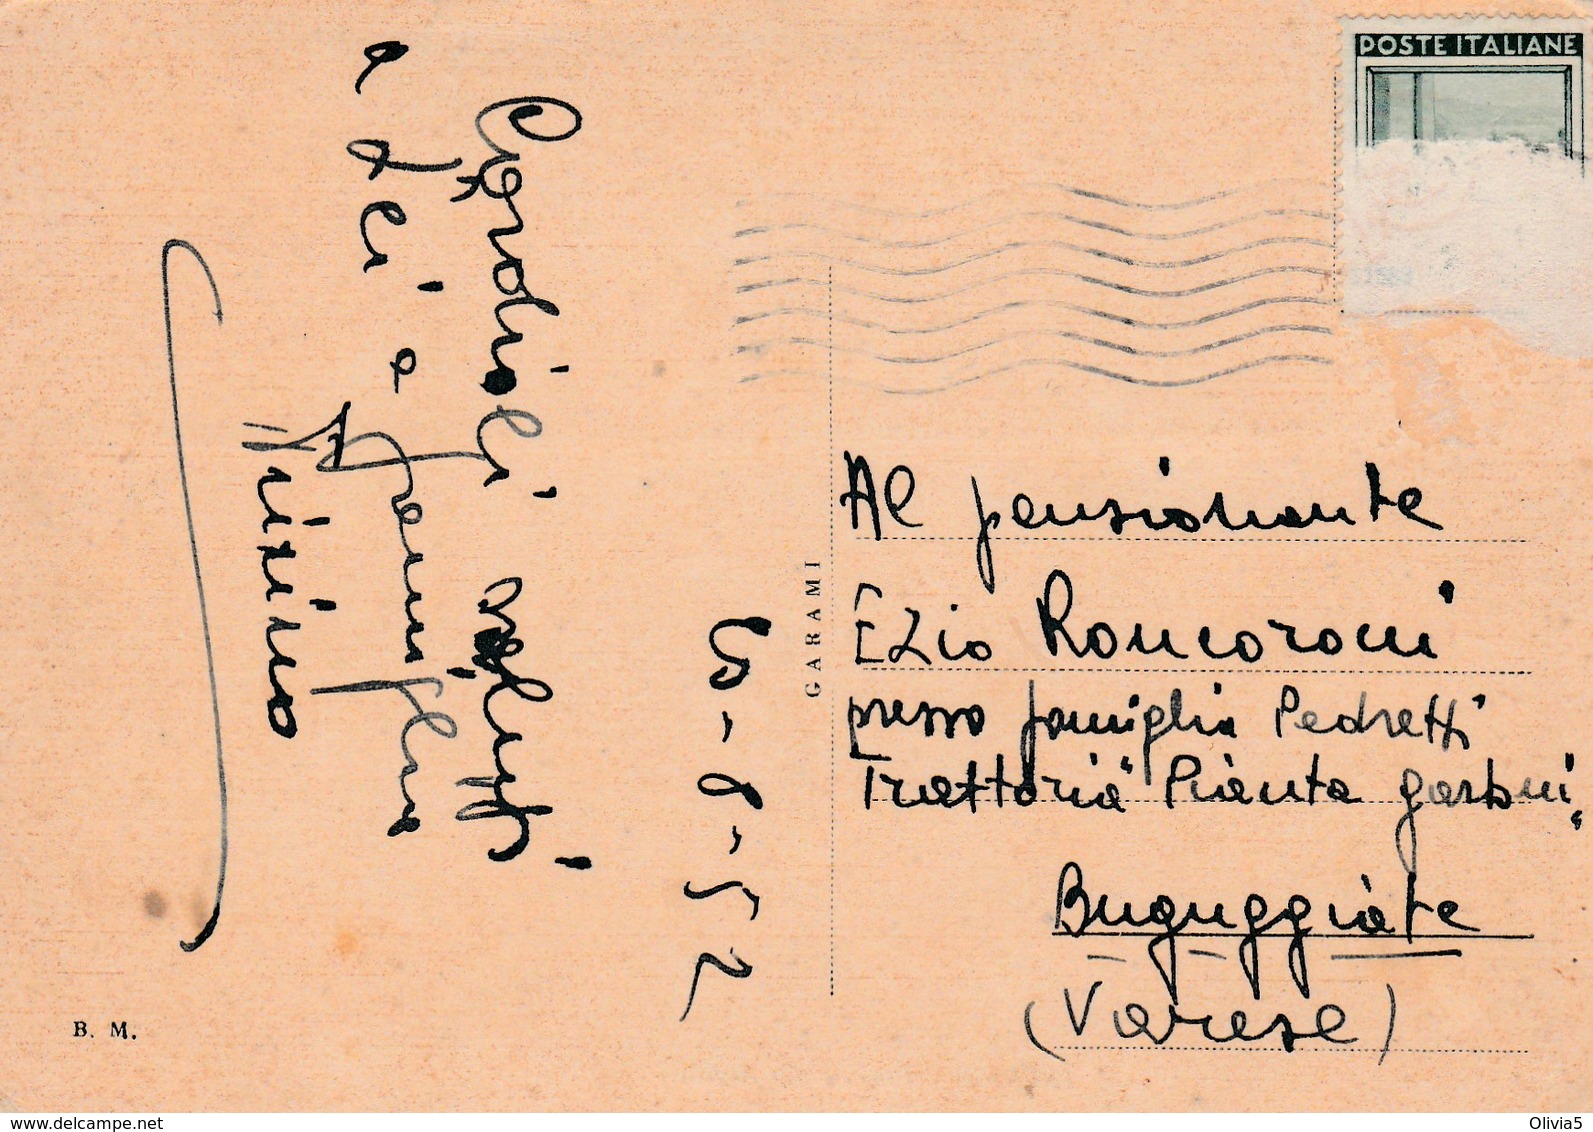 POSTE ITALIANE
Cordiali auguri
a Lei e famiglia
10-8-52
GARAMI
Al pensionante
Ezio Roncoroni
presso famiglia Pedretti
Trattoria "Pianta garbui"
Buguggiate
(Varese)
B. M.
www.delcampe.net
Olivia5